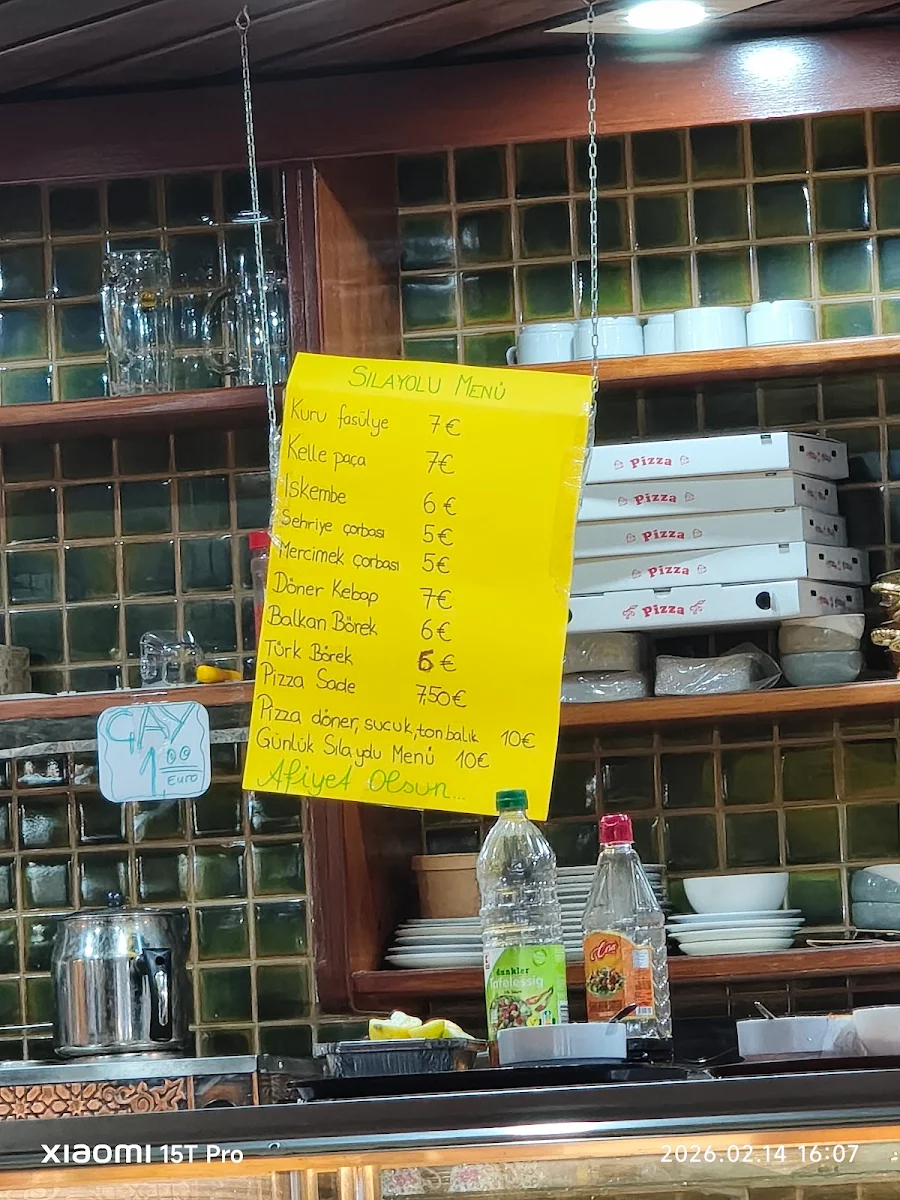 SILAYOLU MENÜ
Kuru fasülye 7€
Kelle paça 7€
İskembe 6€
Sehriye çorbası 5€
Mercimek çorbası 5€
Döner Kebap 7€
Balkan Börek 6€
Türk Börek 6€
Pizza Sade 7,50€
Pizza döner, sucuk, ton balık 10€
Günlük Sıla yolu Menü 10€
Afiyet Olsun...
ÇAY
1.00
Euro
Pizza
Pizza
Pizza
Pizza
Pizza
dunkler
Tafelessig
XIAOMI 15T Pro
2026.02.14 16:07